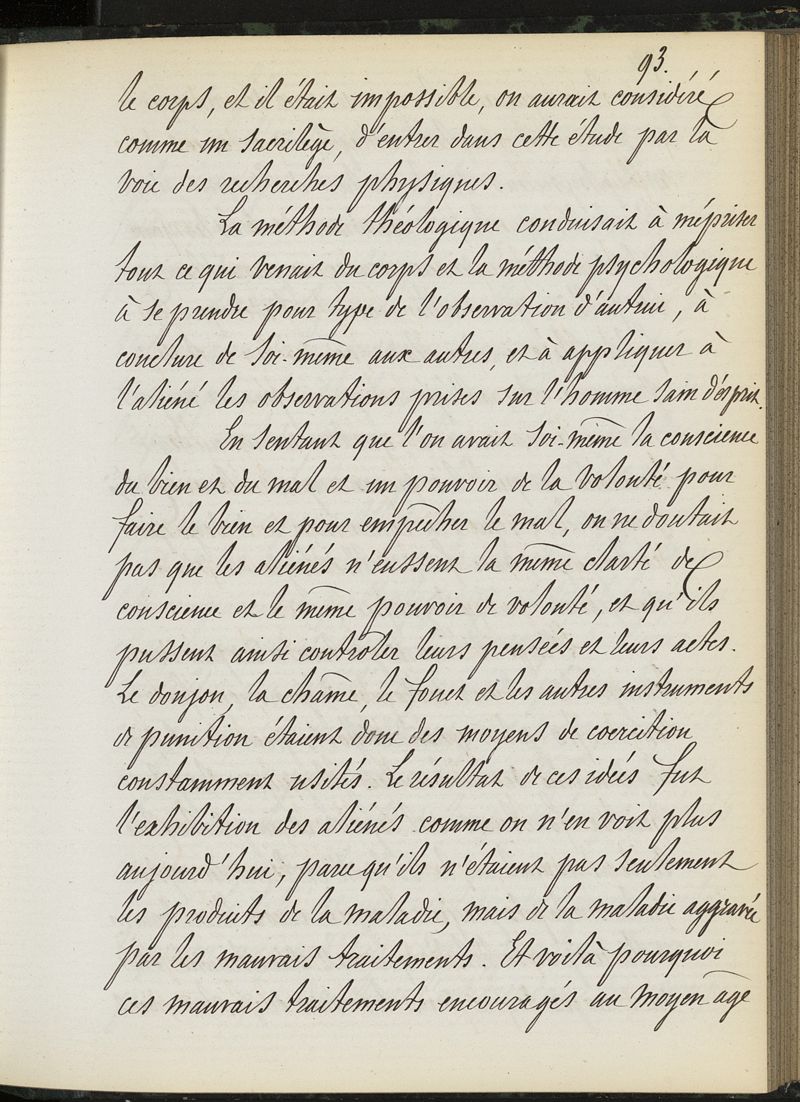 93.
le corps, et il était impossible, on aurait considéré
comme un sacrilège, d'entrer dans cette étude par la
voie des recherches physiques.
La méthode théologique conduisait à mépriser
tout ce qui venait du corps et la méthode psychologique
à se prendre pour type de l'observation d'autrui, à
conclure de soi-même aux autres, et à appliquer à
l'aliéné les observations prises sur l'homme sain d'esprit.
En sentant que l'on avait soi-même la conscience
du bien et du mal et un pouvoir de la volonté pour
faire le bien et pour empêcher le mal, on ne doutait
pas que les aliénés n'eussent la même clarté de
conscience et le même pouvoir de volonté, et qu'ils
pussent ainsi contrôler leurs pensées et leurs actes.
Le donjon, la chaîne, le fouet et les autres instruments
de punition étaient donc des moyens de coercition
constamment usités. Le résultat de ces idées fut
l'exhibition des aliénés comme on n'en voit plus
aujourd'hui, parce qu'ils n'étaient pas seulement
les produits de la maladie, mais de la maladie aggravée
par les mauvais traitements. Et voilà pourquoi
ces mauvais traitements encouragés au moyen âge